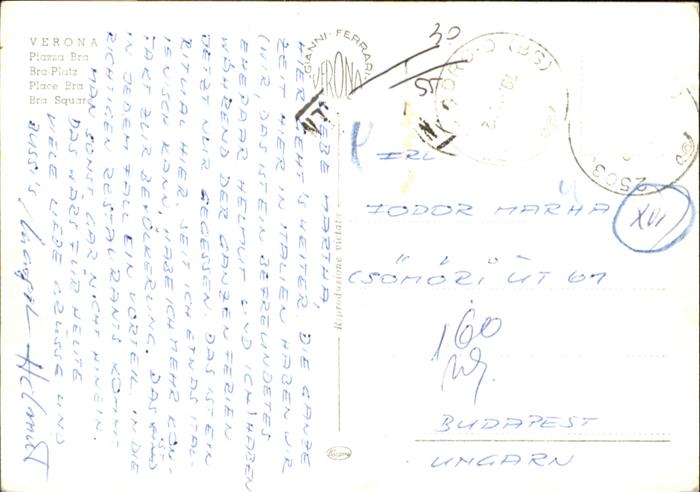 VERONA
Piazza Bra
Bra-Platz
Place Bra
Bra Square
GIANNI · FERRARI
VERONA
Riproduzione vietata
LIEBE MARTHA,
HIER GEHT'S WEITER. DIE GANZE
ZEIT HIER IN ITALIEN HABEN WIR
(WIR, DAS IST EIN BEFREUNDETES
EHEPAAR, HELMUT UND ICH) HABEN
WÄHREND DER GANZEN FERIEN
JETZT NUR GEGESSEN. DAS IST EIN
RITUAL HIER. SEIT ICH ETWAS ITAL-
IENISCH KANN, HABE ICH MEHR KON-
TAKT ZUR BEVÖLKERUNG. DAS IST
IN JEDEM FALL EIN VORTEIL. IN DIE
RICHTIGEN RESTAURANTS KOMMT
MAN SONST GAR NICHT HINEIN.
DAS WÄRS FÜR HEUTE
VIELE LIEBE GRÜSSE UND
BUSSIS,
Helmut
30
FRL
FODOR MARTHA
XVI
CSÖMÖRI UT
160
BUDAPEST
UNGARN